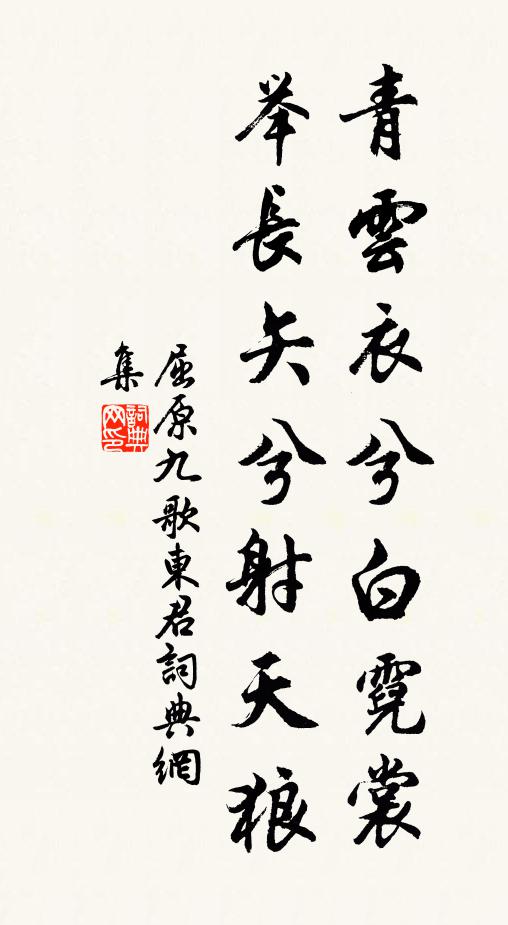 青雲衣兮白霓裳
举長矢兮射天狼
屈原九歌東君詞典網
集
詞典
网印